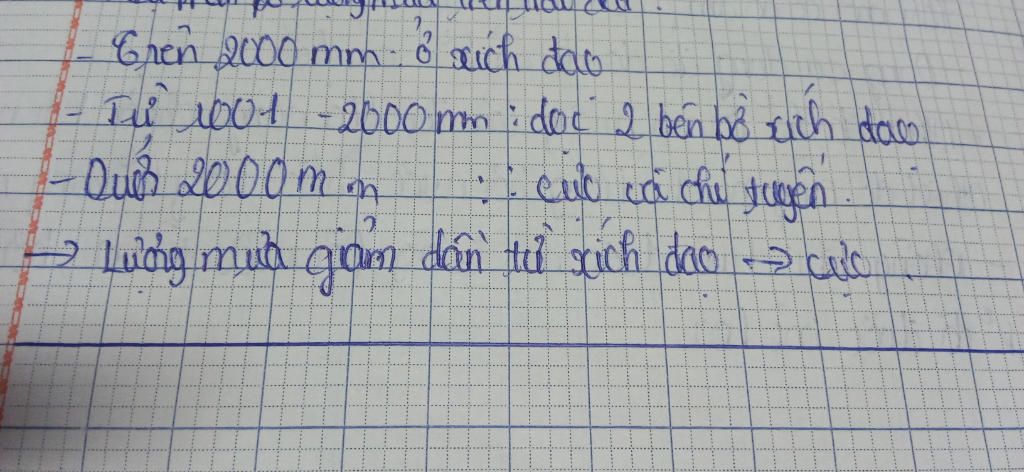 lượng mưa trên trái đất :
- Trên 2000 mm : ở xích đạo
- Từ 1001 - 2000 mm : dọc 2 bên bờ xích đạo
- Dưới 2000 m m : : cực và chí tuyến .
→ Lượng mưa giảm dần từ xích đạo → cực .